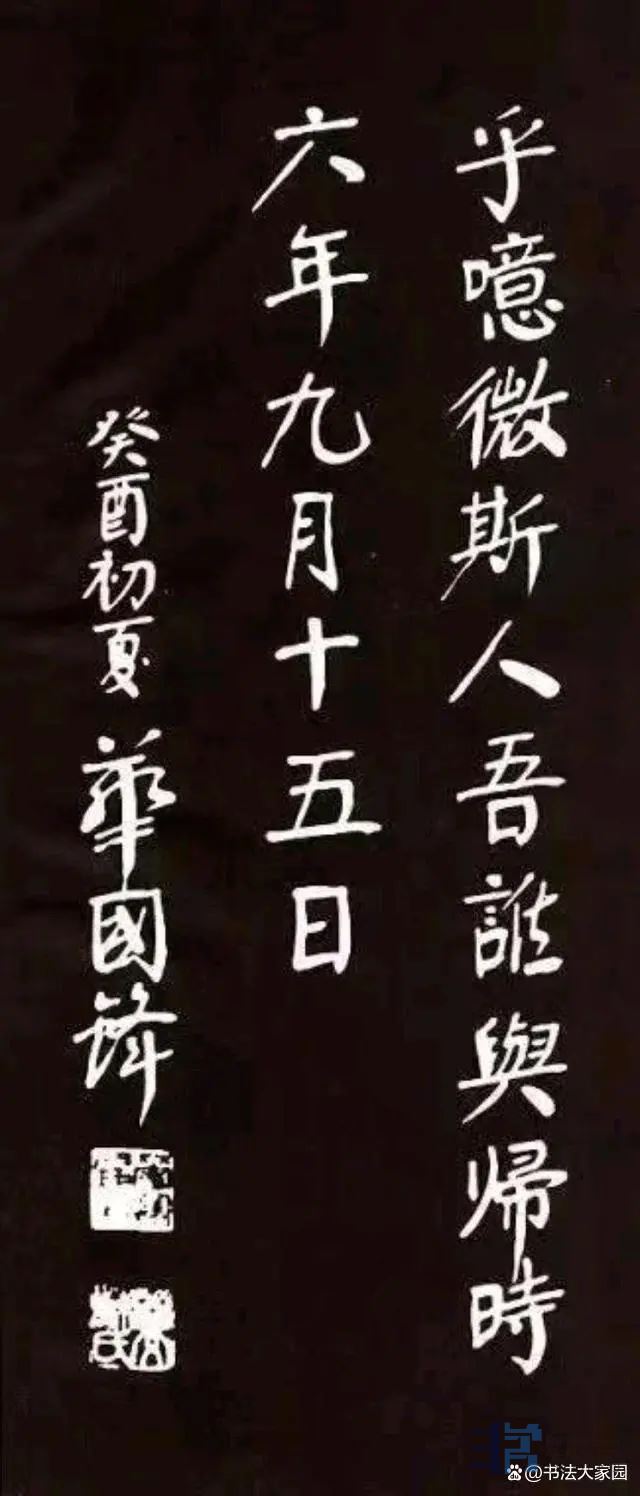 乎噫微斯人吾誰與歸時
六年九月十五日
癸酉初夏 華國鋒
@书法大家园